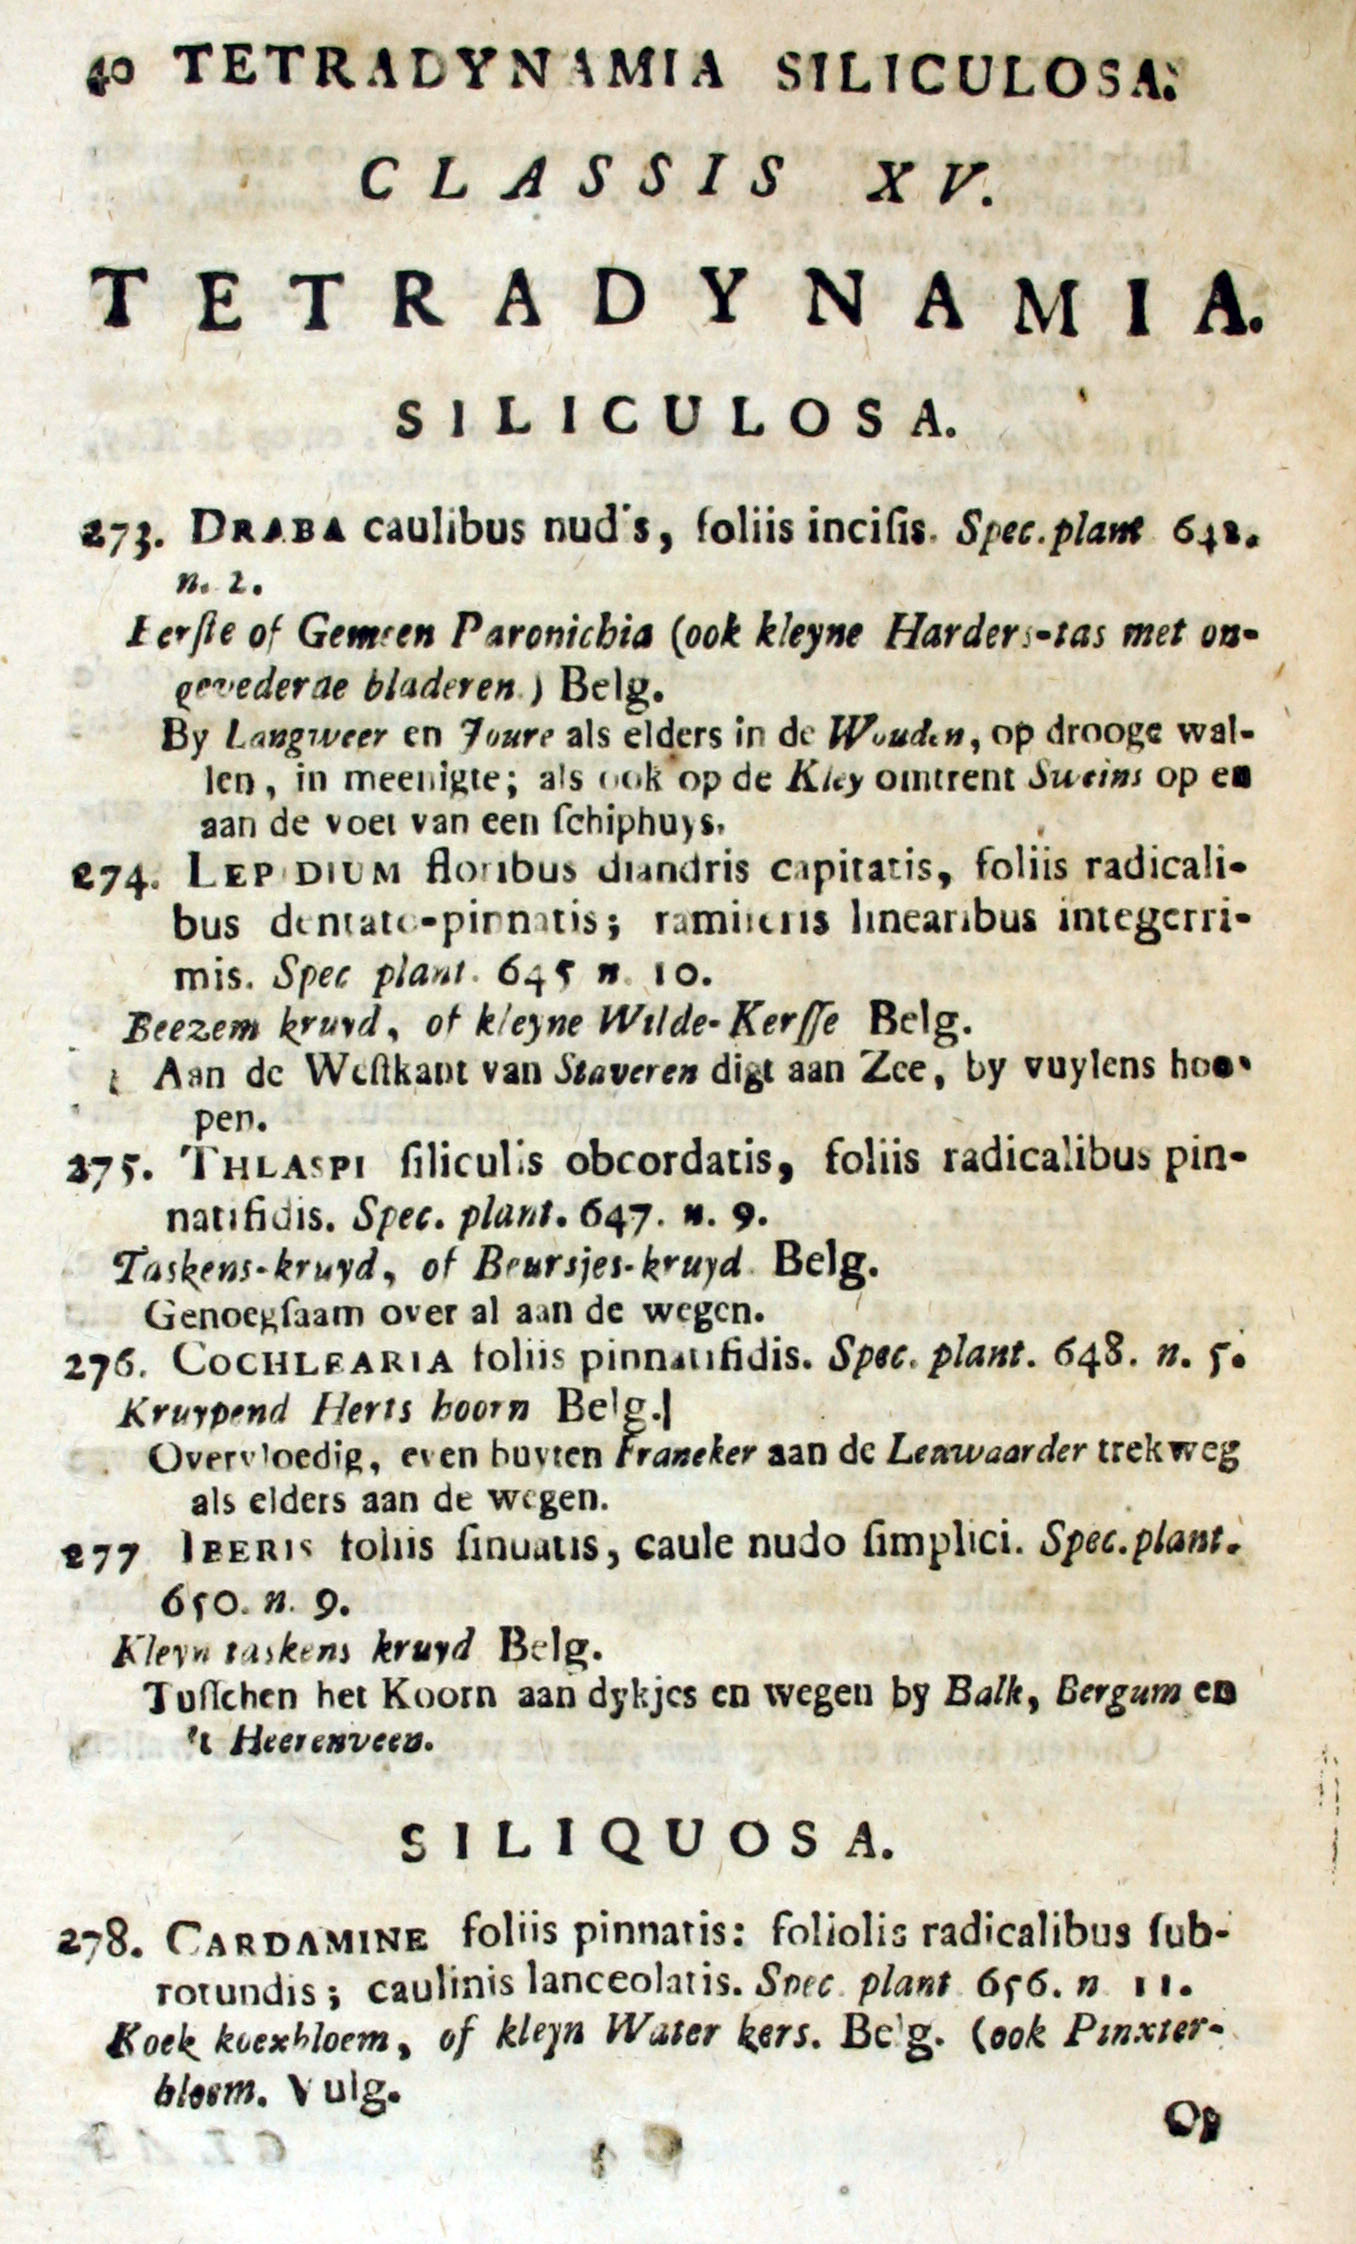 40 TETRADYNAMIA SILICULOSA.
CLASSIS XV.
TETRADYNAMIA.
SILICULOSA.
273. DRABA caulibus nudis, foliis inciſis. Spec. plant 642.
n. 2.
Eerſte of Gemeen Paronichia (ook kleyne Harders-tas met on-
gevederde bladeren.) Belg.
By Langweer en Joure als elders in de Wouden, op drooge wal-
len, in meenigte; als ook op de Kley omtrent Sweins op en
aan de voet van een ſchiphuys.
274. LEPIDIUM floribus diandris capitatis, foliis radicali-
bus dentato-pinnatis; ramiferis linearibus integerri-
mis. Spec plant. 645 n. 10.
Beezem kruyd, of kleyne Wilde-Kerſſe Belg.
Aan de Weſtkant van Staveren digt aan Zee, by vuylens hoo-
pen.
275. THLASPI ſiliculis obcordatis, foliis radicalibus pin-
natifidis. Spec. plant. 647. n. 9.
Taskens-kruyd, of Beursjes-kruyd. Belg.
Genoegſaam over al aan de wegen.
276. COCHLEARIA foliis pinnatifidis. Spec. plant. 648. n. 5.
Kruypend Herts hoorn Belg.
Overvloedig, even buyten Franeker aan de Leuwaarder trekweg
als elders aan de wegen.
277 IBERIS foliis ſinuatis, caule nudo ſimplici. Spec. plant.
650. n. 9.
Kleyn taskens kruyd Belg.
Tuſſchen het Koorn aan dykjes en wegen by Balk, Bergum en
't Heerenveen.
SILIQUOSA.
278. CARDAMINE foliis pinnatis: foliolis radicalibus ſub-
rotundis; caulinis lanceolatis. Spec. plant 656. n 11.
Koek koexbloem, of kleyn Water kers. Belg. (ook Pinxter-
bloem. Vulg.
Op